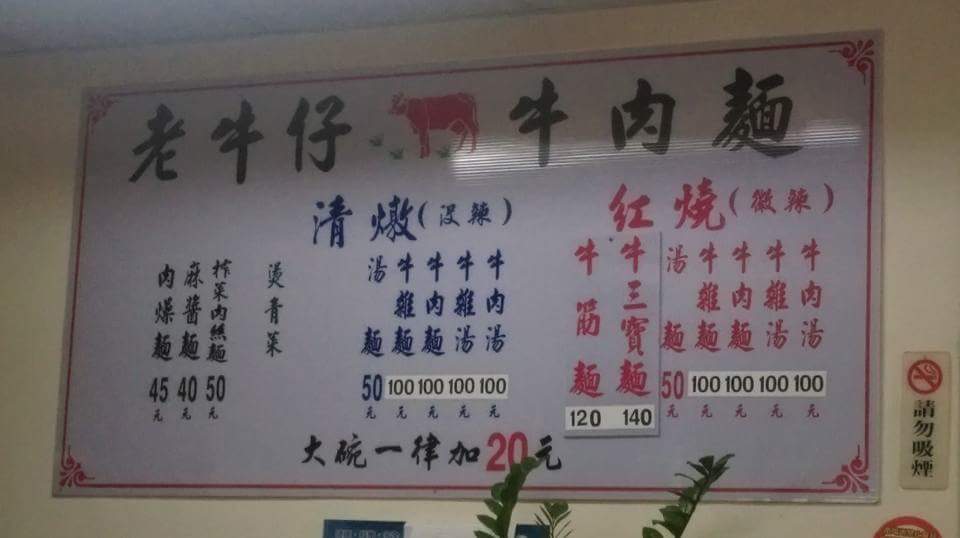 老牛仔 牛肉麵
紅燒(微辣)
牛肉湯 100元
牛雜湯 100元
牛肉麵 100元
牛雜麵 100元
湯麵 50元
牛三寶麵 140
牛筋麵 120
清燉(沒辣)
牛肉湯 100元
牛雜湯 100元
牛肉麵 100元
牛雜麵 100元
湯麵 50元
燙青菜
榨菜肉絲麵 50元
麻醬麵 40元
肉燥麵 45元
大碗一律加20元
請勿吸煙